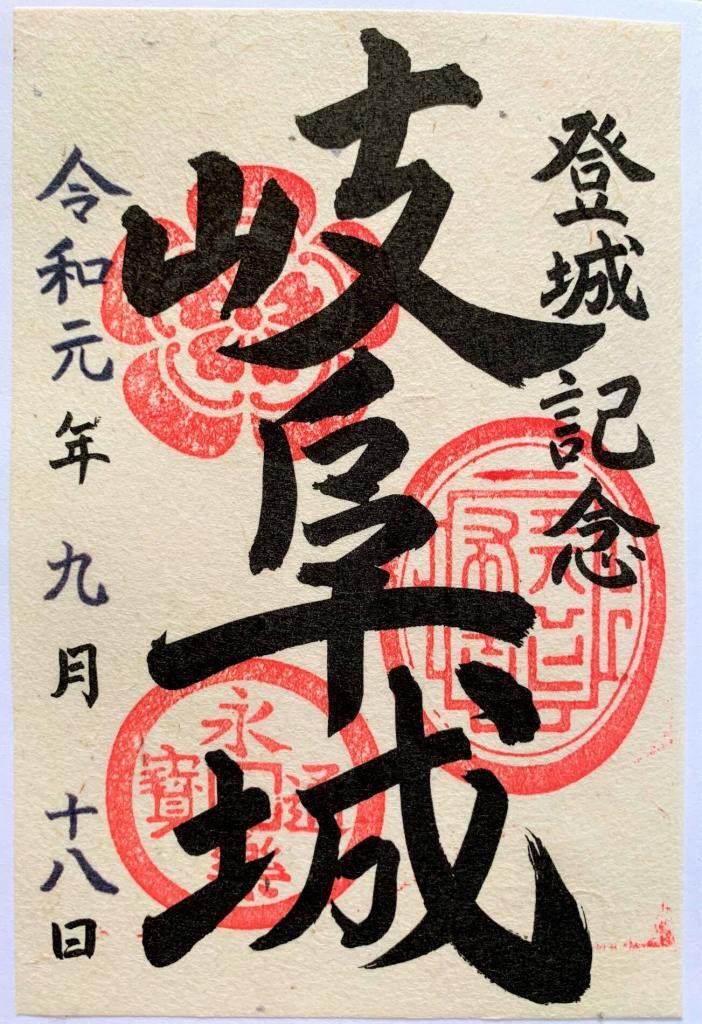 登城記念
岐阜城
令和元年 九月 十八日
永樂通寶